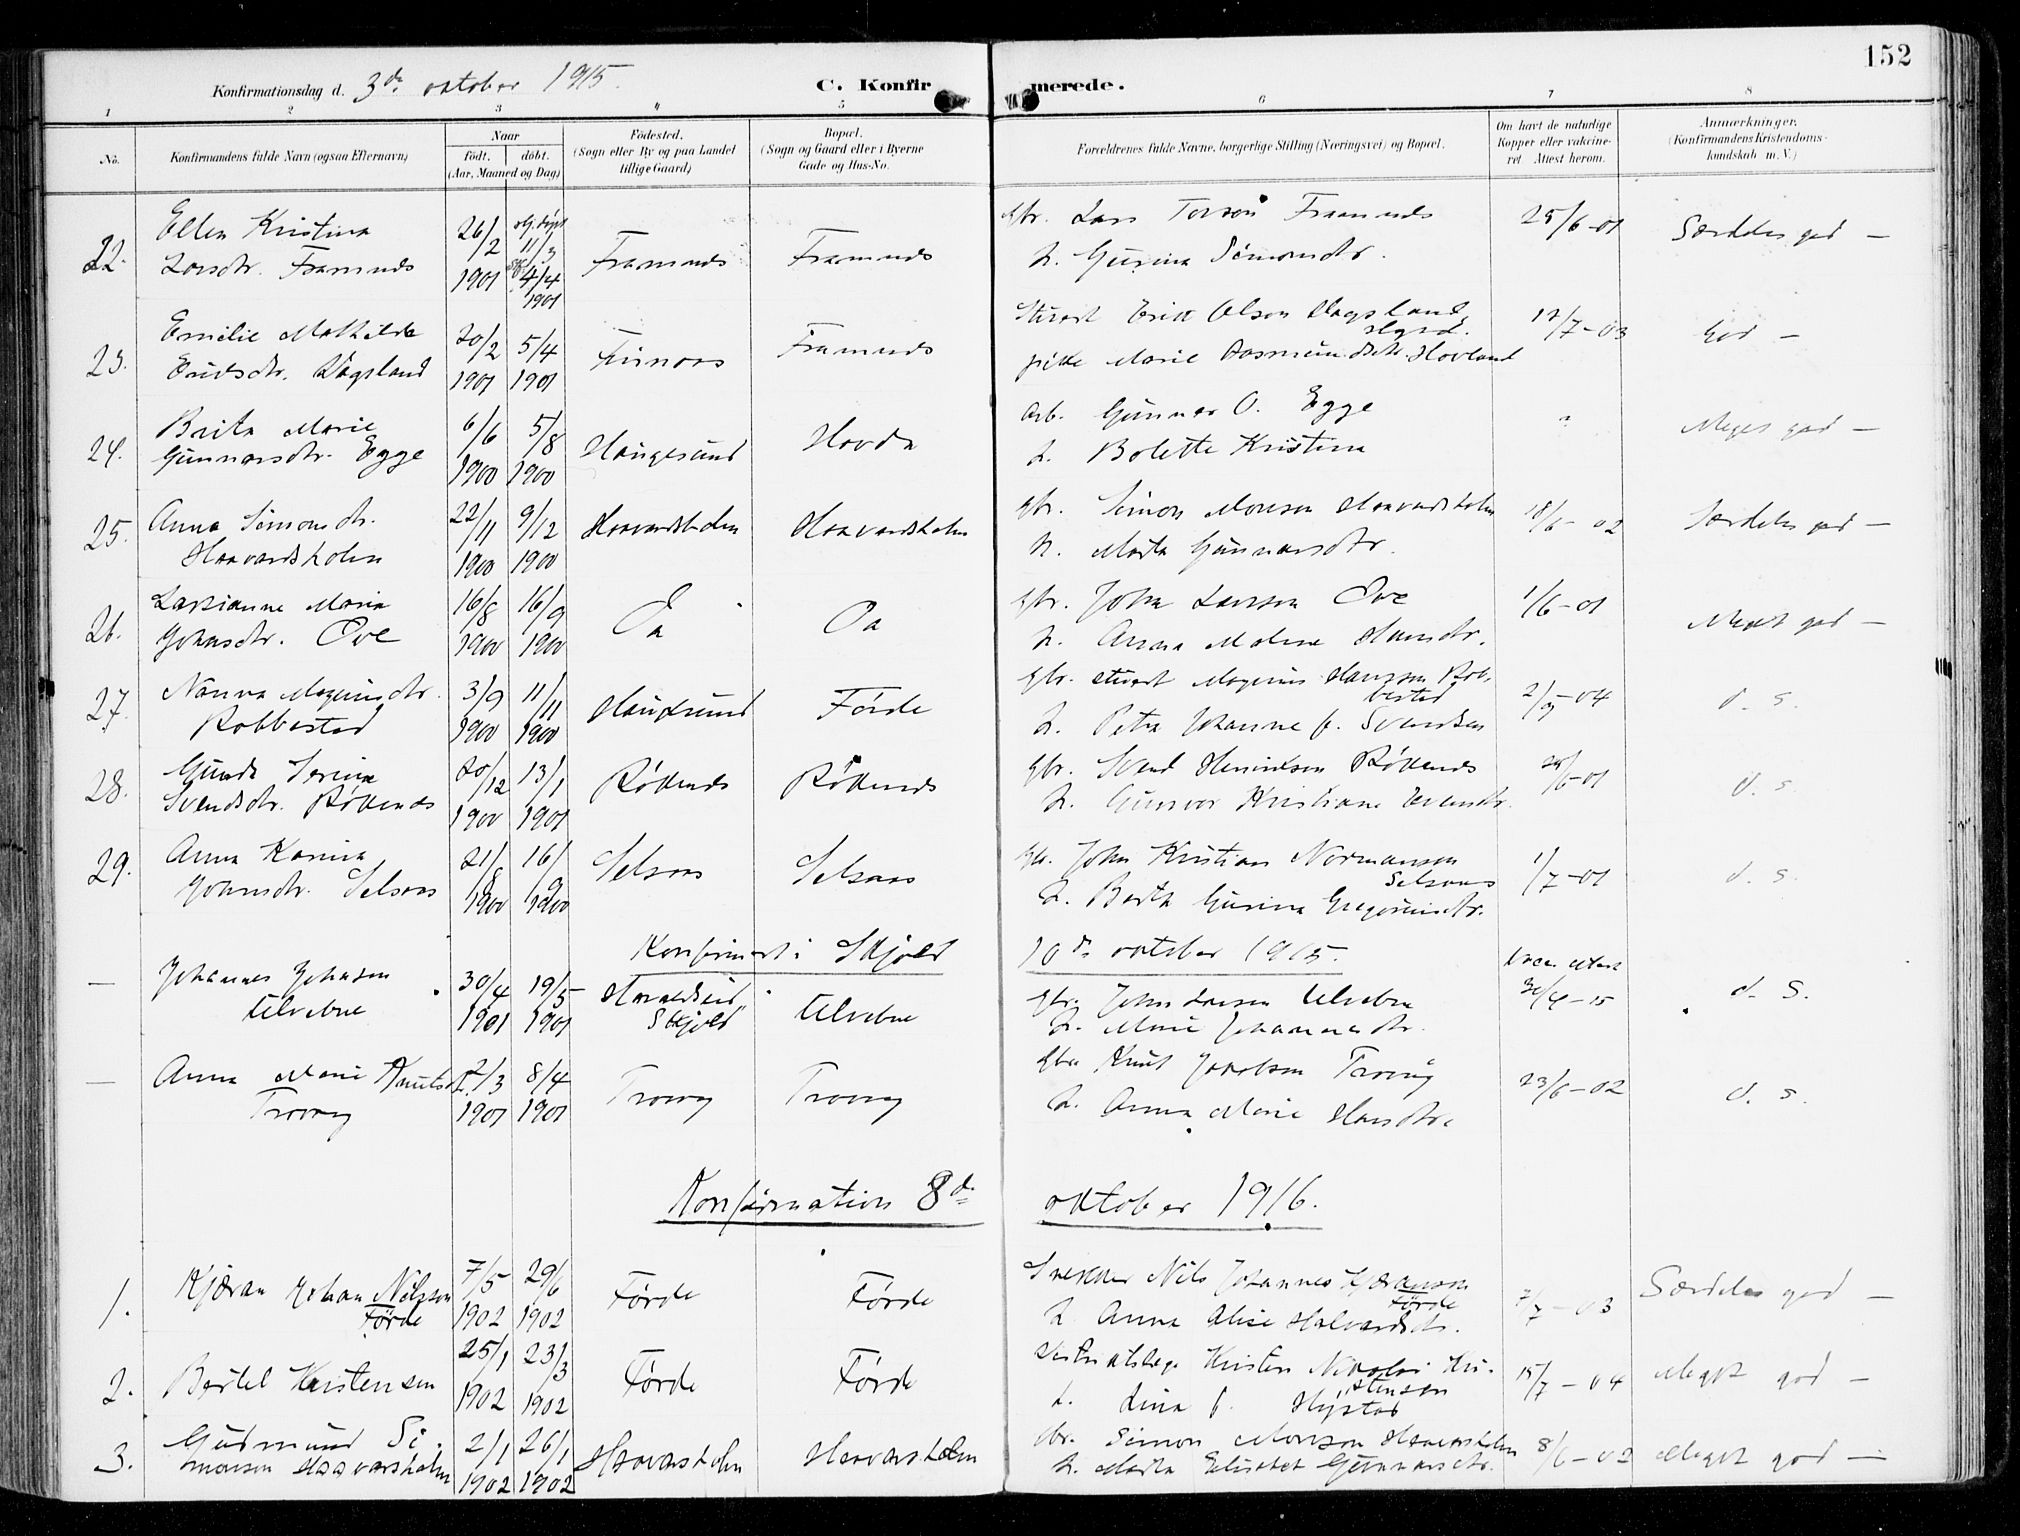 152
Konfirmationsdag d. 3die oktober 1915.
C. Konfirmerede.
1 2 3 4 5 6 7 8
No.
Konfirmandens fulde Navn (ogsaa Efternavn)
Naar
født. døbt.
(Aar, Maaned og Dag)
Fødested.
(Sogn eller By og paa Landet
tillige Gaard)
Bopæl.
(Sogn og Gaard eller i Byerne
Gade og Hus-No.
Forældrenes fulde Navne, borgerlige Stilling (Næringsvei) og Bopæl.
Om havt de naturlige
Kopper eller vakcine-
ret. Attest herom.
Anmærkninger.
(Konfirmandens Kristendoms-
kundskab m. V.)
22. Ellen Kristina 26/2 11/3 Framnes Framnes Gbr. Lars Torsen Framnes 25/6-01 Særdeles god —
Larsdtr. Framnes 1901 4/4 1901 h. Gurina Simonsdtr.
23. Emilie Mathilde 20/2 5/4 Framnes Erik Olson Vagsland 17/7-03 God —
Eriksdtr. Vagsland 1901 1901 pike Marie Rasmusdtr. Hovland
24. Brita Marie 6/6 5/8 Haugesund Hovda Arb. Gunnar O. Egge Meget god —
Gunnarsdtr. Egge 1900 1900 h. Bolette Kristina
25. Anna Simonsdtr. 22/11 9/12 Haavardsholm Haavardsholm Gbr. Simon Monsen Haavardsholm 18/6-02 Særdeles god —
Haavardsholm 1900 1900 h. Marta Gunnarsdtr.
26. Larsianne Maria 16/8 16/9 Oa Gbr. John Larsson Ove 1/6-01 Meget god —
Johnsdtr. Ove 1900 1900 h. Anna Malene Hansdtr.
27. Nanna Magnusdtr. 3/9 11/11 Haugesund Førde Gbr. Magnus Hansson Rob- 2/9-04 d. s.
Robbestad 1900 1900 bestad
h. Petra Johanne f. Svendsen
28. Gunda Serina 20/12 13/1 Røkenes Røkenes Gbr. Svend Henrikson Røkenes d. s.
Svendsdtr. Røkenes 1900 1901 h. Gunvor Kristiane
29. Anna Karina 21/8 16/9 Selsaas Selsaas Gbr. John Kristian Normanson 1/7-01 d. s.
Johnsdtr. Selsaas 1900 1900 Selsaas
h. Berta Gurina Gregoriusdtr.
Konfirmert i Skjold 10de oktober 1915.
— Johannes Johnsen 30/4 19/5 Skjold Gbr. John Larsen d. s.
1901 1901 h. Marie Johannesdtr.
— Anna Marie Knutsd. 2/3 8/4 Trovaag Trovaag Gbr. Knut Jakobsen Trovaag 23/6-02 d. s.
Trovaag 1901 1901 h. Anna Marie Hansdtr.
Konfirmation 8de oktober 1916.
1. Kjæran Johan Nilsson 7/5 29/6 Førde Førde Snekker Nils Johannes Kjæranson 7/7-03 Særdeles god —
Førde 1902 1902 Førde
h. Anna Alise Halvardsdtr.
2. Bertel Kristensen 25/1 23/3 Førde Førde Kristen Nikolai Kri- 15/7-04 Meget god —
1902 1902 stensen
h. Lina f. Hystad
3. Gudmund Si- 2/1 26/1 Haavarsholm Haavarsholm Gbr. Simon Monson Haavarsholm 8/6-03 Meget god —
monsen Haavarsholm 1902 1902 h. Marta Elisabet Gunnarsdtr.